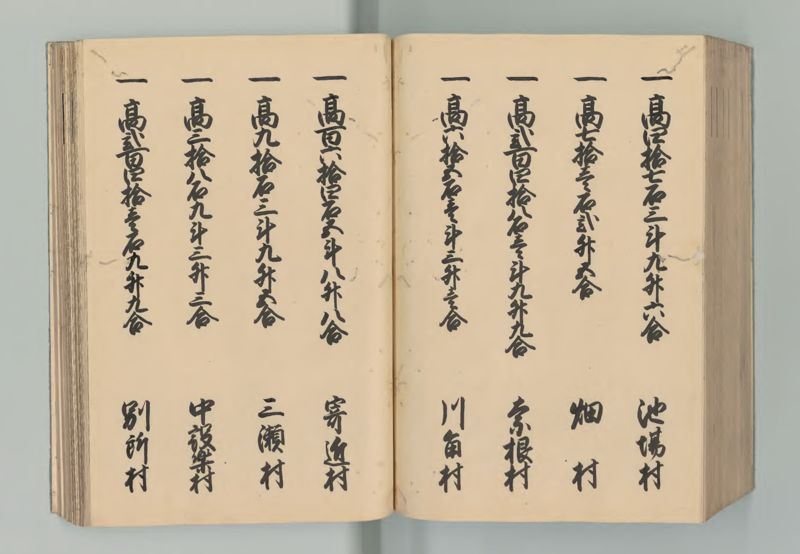 一 高四拾七石三斗九升六合 池場村
一 高七拾壱石弐升五合 畑村
一 高弐百四拾八石壱斗九升九合 奈根村
一 高六拾五石壱斗三升壱合 川角村
一 高百六拾四石五斗八升八合 寄近村
一 高九拾石三斗九升五合 三瀬村
一 高三拾八石九斗三升三合 中設楽村
一 高弐百四拾壱石九升九合 別所村